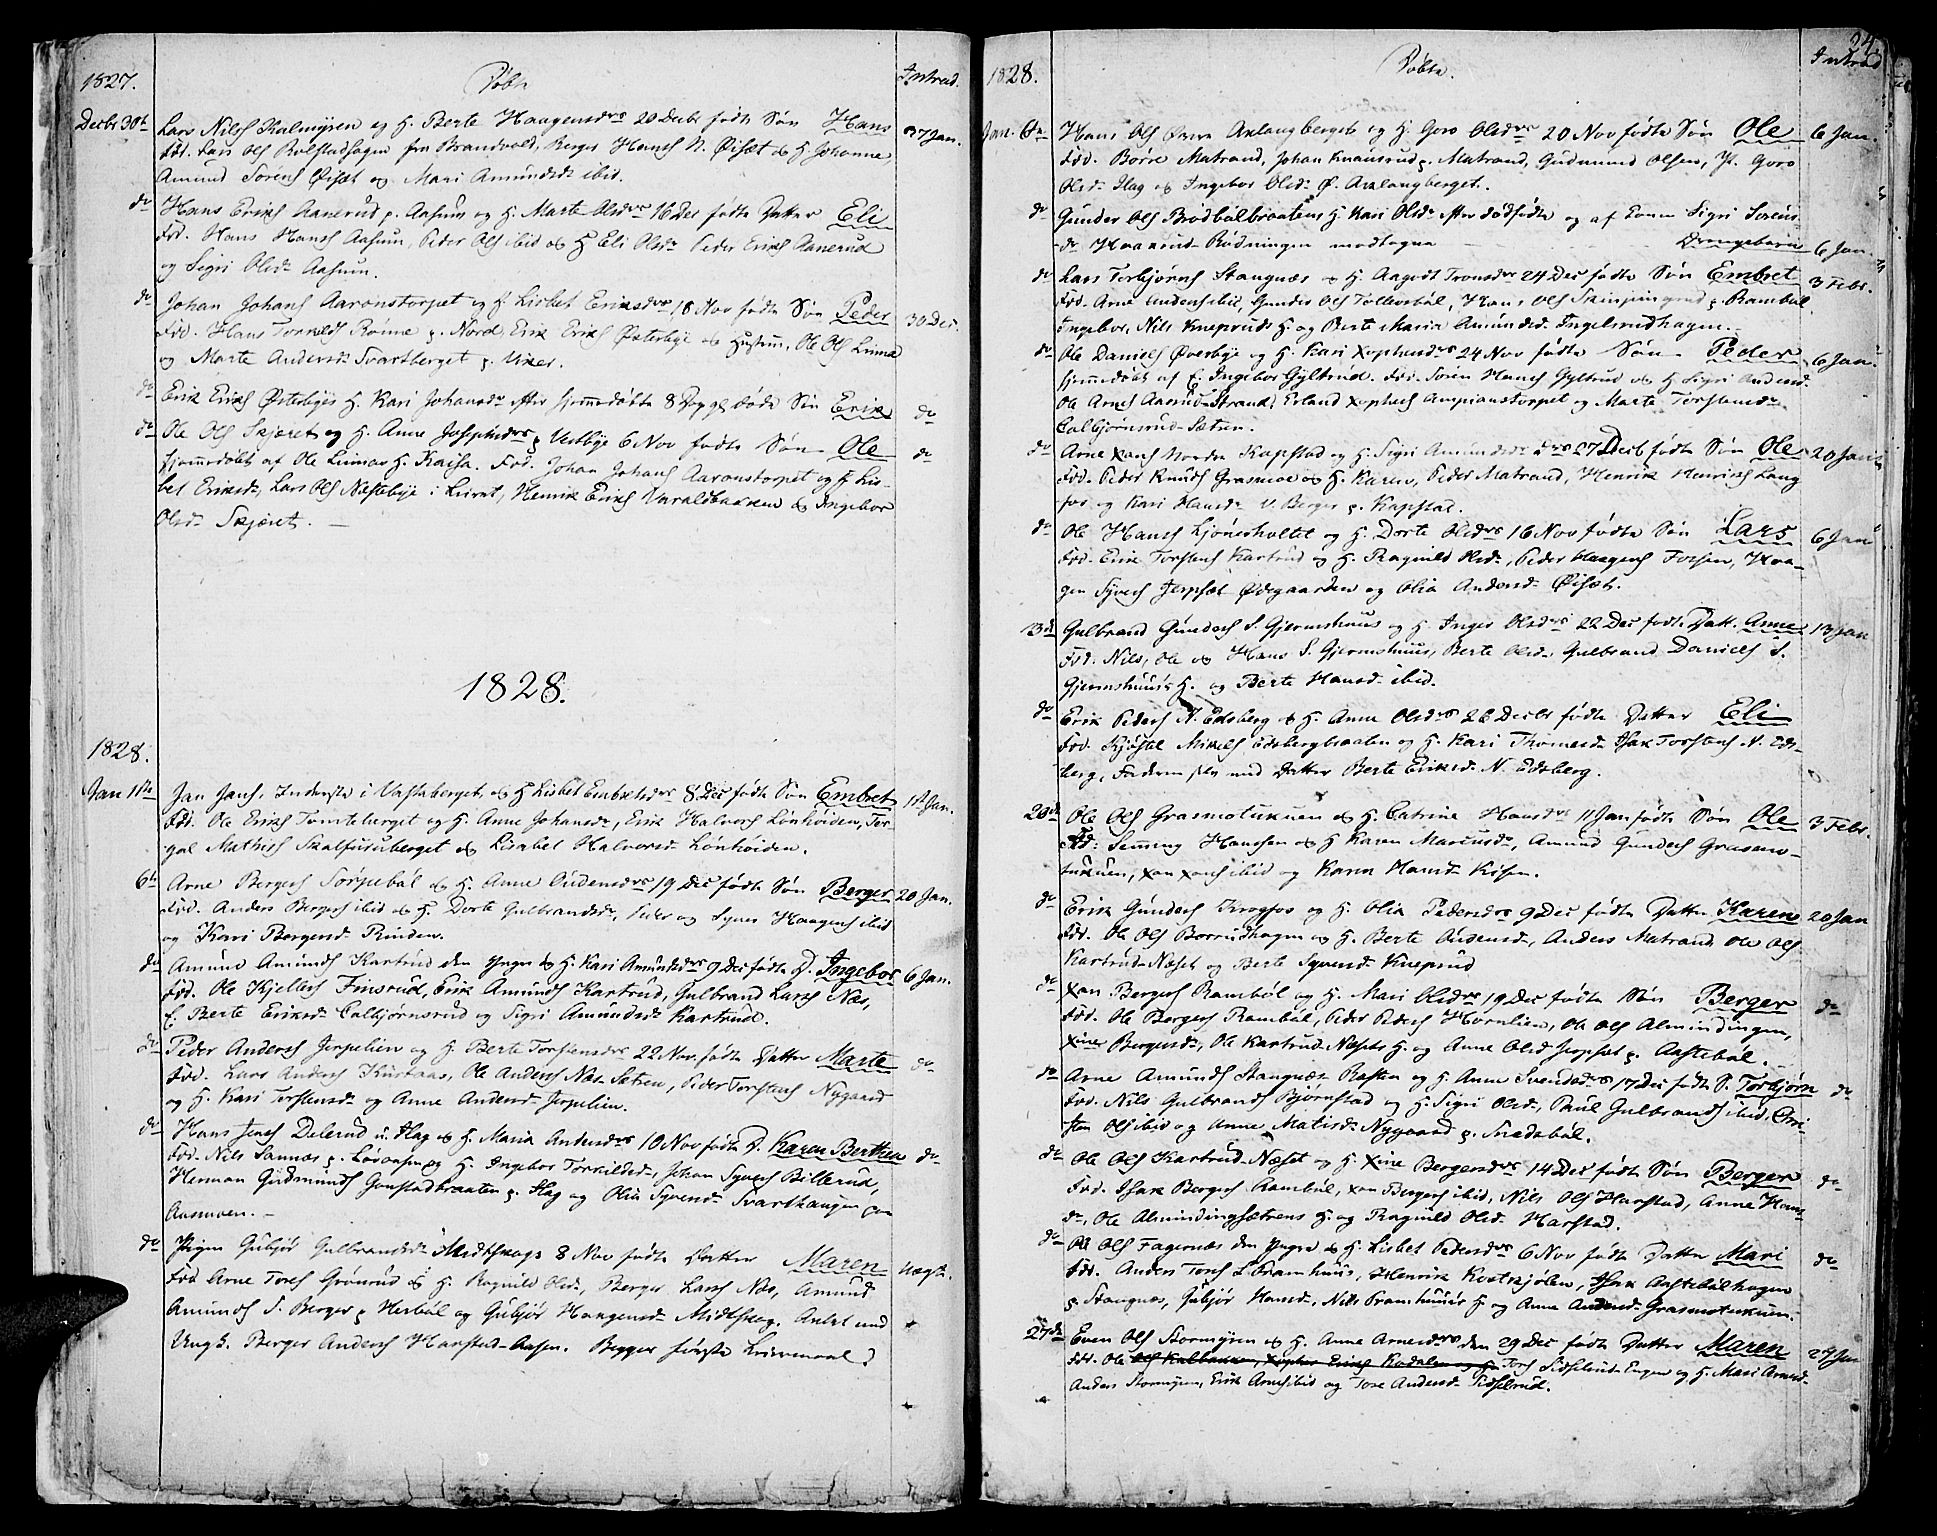 1827.
Døbte
Introd.
Decbr 30te Lars Nilsen Kulmyren og H. Berte Haagensdrs 20 Decbr fødte Søn Hans 37 Jan.
Fad. Lars Ols Rolstadhagen fra Brandvold, Berger Hansen N. Øisæt & H. Johanne
Amund Sorens Øisæt og Mari Amundsdr ibid.
do Hans Eriks Aanerud p. Aasum og H. Marte Olsdrs 16 Dec fødte Datter Eli
Fad. Hans Hans Aasum, Peder Ols ibid & H Eli Olsdr Peder Eriks Aanerud
og Sigri Olsdr Aasum.
do Johan Johans Aaronstorpet og H. Lisbet Eriksdrs 18 Nov fødte Søn Peder 30 Dec.
Fad. Hans Torkilds Roine p. Nord, Erik Eriks Østerbye & Hustru, Ole Ols Lirma
og Marte Andersdr Svartberget p. Viker.
do Erik Eriks Østerbyes H. Kari Johansdr efter hjemmedøbte 8 Dage døde Søn Erik do
do Ole Ols Skjæret og H. Anne Josephsdrs p Vestbye 6 Nov fødte Søn Ole do
hjemmedøbt af Ole Lirmas H. Kaisa. Fad. Johan Johans Aaronstorpet og H Lis-
bet Eriksdr, Lars Ols Næstebye i Lirmt, Henrik Eriks Varaldbakken & Ingebor
Olsdr Skjæret.
1828.
1828.
Jan 1ste Jan Jans, Inderste i Vastaberget & H Lisbet Embretsdrs 8 Dec fødte Søn Embret 1st Jan.
Fad. Ole Eriks Tomteberget og H. Anne Johansdr, Erik Halvors Lønhøiden, Tor-
gal Mathis Skalfuruberget & Lisabet Halvorsdr Lønhøiden.
6te Arne Bergers Sorpebøl & H. Anne Oudensdrs 19 Dec fødte Søn Berger 20 Jan.
Fad. Anders Bergers ibid & H. Dorte Gulbrandsdr, Peder og Syver Haagens ibid
og Kari Bergersdr Rinden.
do Amund Amunds Kartrud den Yngre & H. Kari Amundsdrs 9 Dec fødte D. Ingebor 6 Jan.
Fad. Ole Kjellers Finsrud, Erik Amunds Kartrud, Gulbrand Lars Næs,
H. Berte Eriksdr Calbjørnsrud og Sigri Amundsdr Kartrud.
do Peder Anders Jerpelien og H. Berte Torstensdrs 22 Nov. fødte Datter Marte do
Fad. Lars Anders Kurtaas, Ole Anders Næs Sætren, Peder Torstens Nygaard
og H. Kari Torstensdr og Anne Andersdr Jerpelien.
do Hans Jens Delerud u. Hag & H. Maria Andersdrs 10 Nov fødte D. Karen Berthea do
Fad. Nils Sannæs p. Lødvasen og H. Ingebor Torkildsdr, Johan Syvers Billerud,
Herman Gudmunds Gonstadbraaten p. Hag og Olia Syversdr Svarthaugen paa
Aasmoen.
do Pigen Gubjør Gulbrandsdr Midtskogs 8 Nov fødte Datter Maren Uægte.
Fad Arne Tores Grønrud & H. Ragnild Olsdr, Berger Lars Næs, Amund
Amunds S. Berger p Herbøl og Gubjør Haagensdr Midtskog. Anlet ved
Ungk. Berger Anders Harstad-Aasen. Begges første Leiermaal.
24.
1828.
Døbte.
Introd
Jan. 6te Hans Ols Øvre Axlangberget og H. Goro Olsdrs 20 Nov fødte Søn Ole 6 Jan.
Fad. Børre Matrand, Johan Knausrud p. Matrand, Gudmund Olsen, H. Goro
Olsdr Hag & Ingebor Olsdr Ø. Axlangberget.
do Gunder Ols Brødbølbraatens H. Kari Olsdr efter dødfødte og af Konen Sigri Sorens-
dr Haarrud-Rødningen modtagne Drengebarn 6 Jan.
do Lars Torbjørns Stangnæs & H. Aagodt Tronsdrs 24 Dec fødte Søn Embret 3 Febr.
Fad. Arne Oudens ibid, Gunder Ols Tollersbøl, Hans Ols Skinpungrud p Rambøl
Ingebor, Nils Kneprud's H. og Berte Maria Amundsdr Ingelsrudhagen.
do Ole Daniels Øverbye og H. Kari Xophersdrs 24 Nov fødte Søn Peder 6 Jan.
hjemmedøbt af H. Ingebor Gyltrud. Fad. Sorén Hans Gyltrud & H. Sigri Andersd.
Ole Arnes Aasrud-Strand, Erland Xophers Ampianstorpet og Marte Torstensdr
Calbjørnsrud-Sætren.
do Arne Xans Nordre Kapstad og H. Sigri Amundsdrs 27 Decb fødte Søn Ole 20 Jan
Fad. Peder Knuds Grasmoe & H. Karen, Peder Matrand, Henrik Henrichs Lang-
fos og Kari Hansdr V. Berger p. Kapstad.
do Ole Hans Ljønesholtet og H. Dorte Olsdrs 16 Nov fødte Søn Lars 6 Jan
Fad. Erik Torstens Kartrud og H. Ragnild Olsdr, Peder Haagens Forsen, Haa-
gen Syvers Jerpset Ødegaarden og Olia Andersdr Øisæt.
13de Gulbrand Gunders S. Gjermshuus og H. Inger Olsdrs 22 Dec fødte Datt. Anne 13 Jan
Fad. Nils, Ole & Hans S. Gjermshuus, Berte Olsdr Gulbrand Daniels S.
Gjermshuus's H. og Berte Hansdr ibid.
do Erik Peders N. Edsberg & H. Anne Olsdrs 26 Decbr fødte Datter Eli
Fad. Kjøstel Mikels Edsbergbraaten og H. Kari Thomesdr Isak Torstens N. Eds-
berg, Faderen selv med Datter Berte Eriksdr N. Edsberg.
20de Ole Ols Grasmotukuen & H. Catrine Hansdrs 11 Jan fødte Søn Ole 3 Febr.
Fad: Semming Hansen & H Karen Marcusdr, Amund Gunders Grasmo-
tukuen, Xan Xans ibid og Karen Hansdr Kisen.
do Erik Gunders Krogfos og H. Olia Pedersdrs 9 Dec fødte Datter Karen 20 Jan
Fad. Ole Ols Borrudhagen & H. Berte Oudensdr, Anders Matrand, Ole Ols
Kartrud-Næset og Berte Syversdr Kneprud
do Xan Bergers Rambøl og H. Mari Olsdrs 19 Dec fødte Søn Berger do
Fad. Ole Bergers Rambøl, Peder Peders Hornlien, Ole Ols Almindingen,
Xine Bergersdr, Ole Kartrud-Næsets H. og Anne Olsd Jerpset p. Aastebøl.
do Arne Amunds Stangnæs Rasten og H. Anne Svendsdrs 17 Dec fødte S. Torbjørn do
Fad. Nils Gulbrands Bjørnstad og H. Sigri Olsdr, Paul Gulbrands ibid, Chri-
sten Ols ibid og Anne Matisdr Nygaard p. Snadsbøl.
do Ole Ols Kartrud-Næset og H. Xine Bergersdrs 14 Dec fødte Søn Berger do
Fad. Isak Bergers Rambøl, Xan Bergers ibid, Nils Ols Harstad, Anne Hans-
dr, Ole Almindingsætrens H. og Ragnild Olsdr Harstad.
do Ole Ols Fagernæs den Yngre & H. Lisbet Pedersdrs 6 Nov fødte Datter Mari do
Fad. Anders Tores L. Pramhuus, Henrik Kostskjølen, Isak Aastebølhagen
p Stangnæs, Gubjør Hansdr, Nils Pramhuus's H. og Anne Andersdr Grasmotukuen.
27de Even Ols Stormyren & H. Anne Arnesdrs den 29 Dec fødte Datter Maren 27 Jan
Fad. Ole Ols Kulbakken, Xopher Eriks Kodalen og H. Tores Sidselrud-Engen og H. Mari Arnesd-
Anders Stormyren, Erik Arnes ibid og Tore Andersdr Sidselrud.